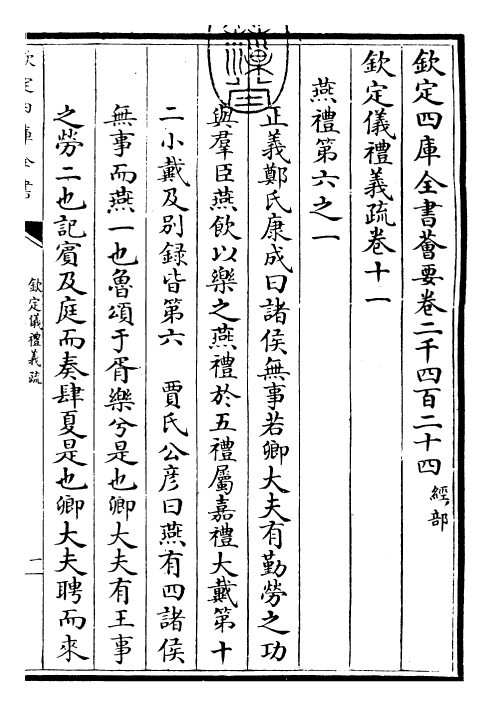 欽定四庫全書薈要卷二千四百二十四 經部
欽定儀禮義疏卷十一
燕禮第六之一
正義鄭氏康成曰諸侯無事若卿大夫有勤勞之功
與羣臣燕飲以樂之燕禮於五禮屬嘉禮大戴第十
二小戴及别録皆第六 賈氏公彦曰燕有四諸侯
無事而燕一也魯頌于胥樂兮是也卿大夫有王事
之勞二也記賓及庭而奏肆夏是也卿大夫聘而來
欽定四庫全書
欽定儀禮義疏
一